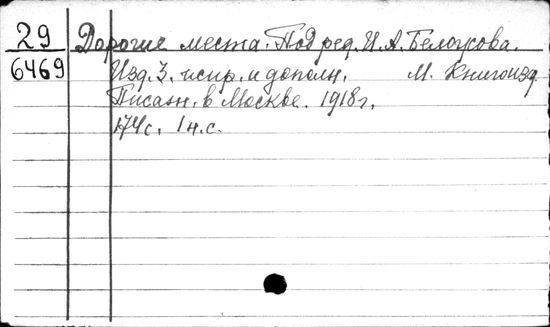 29 Дорогие места. Под ред. И. А. Белоусова.
6469 Изд. 3. испр. и дополн. М. Книгоизд.
Писат. в Москве. 1918 г.
174 с. 1 н. с.